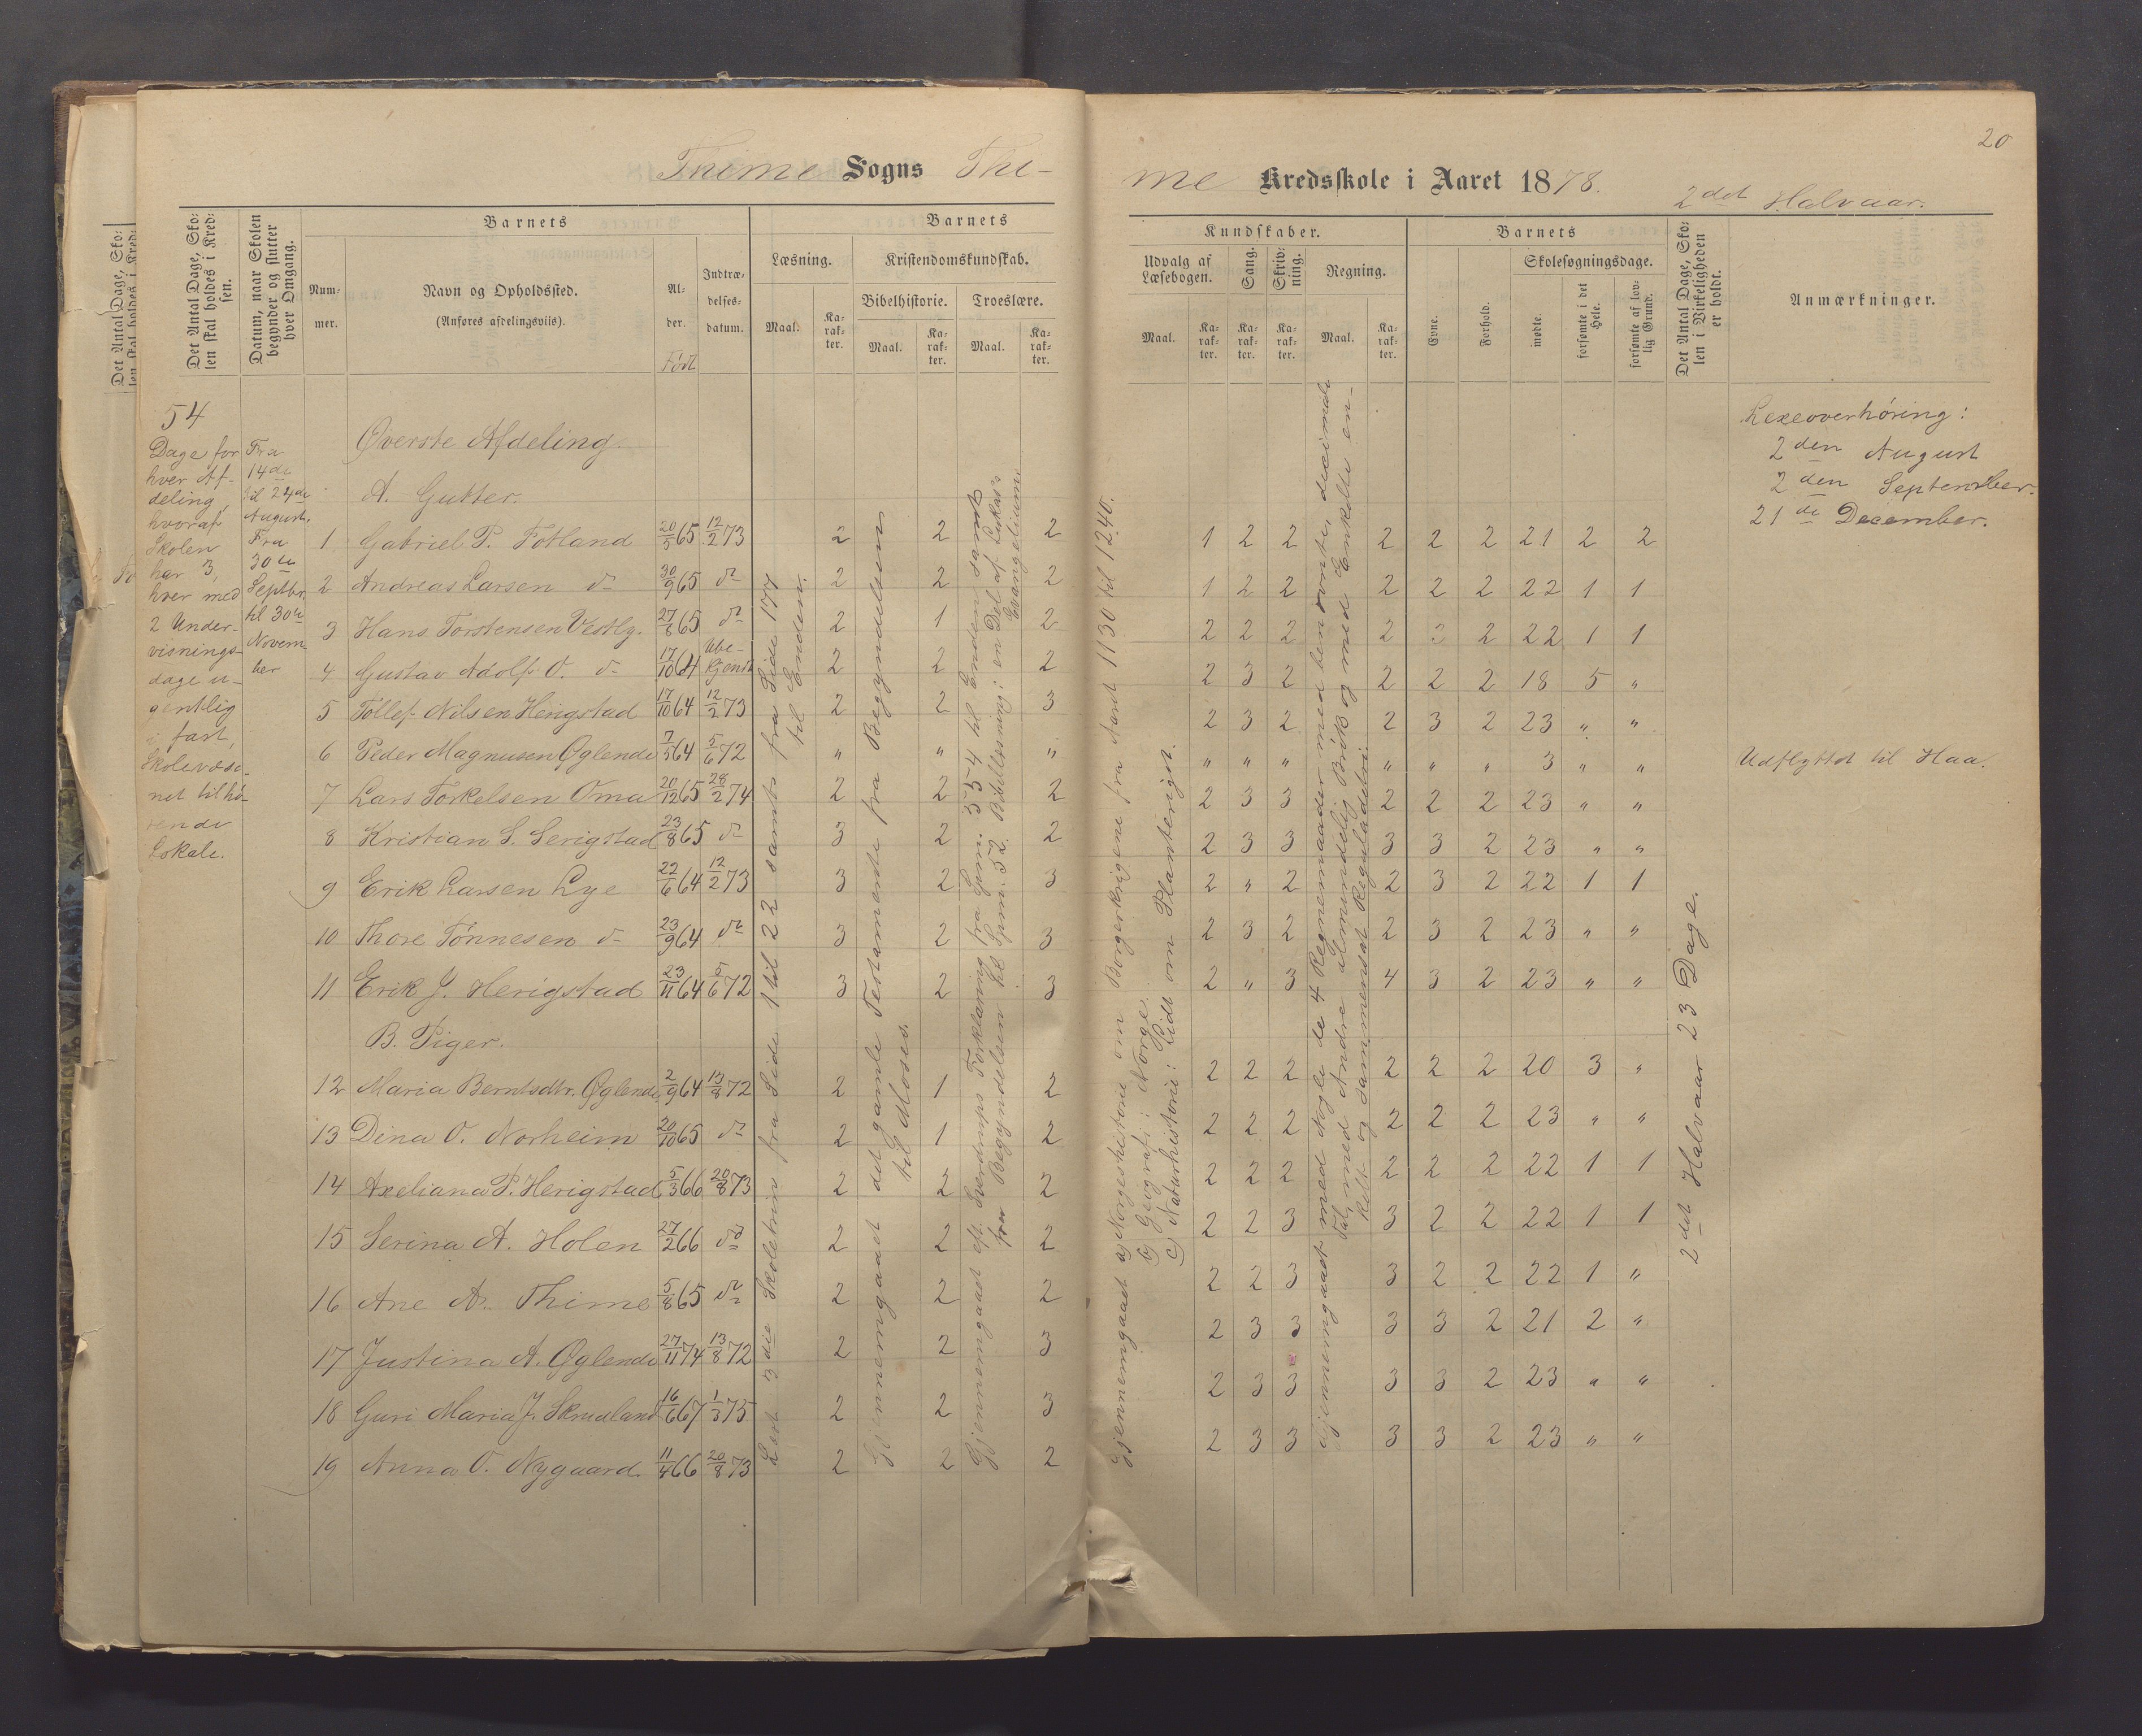 20
Thime Sogns Thi-
me Kredsskole i Aaret 1878.
2det Halvaar.
Det Antal Dage, Sko-
len skal holdes i Kred-
sen.
Datum, naar Skolen
begynder og slutter
hver Omgang.
Barnets
Num-
mer.
Navn og Opholdssted.
(Anføres afdelingsviis).
Al-
der.
Født
Indtræ-
delses-
datum.
Barnets
Læsning.
Maal.
Ka-
rak-
ter.
Kristendomskundskab.
Bibelhistorie.
Maal.
Ka-
rak-
ter.
Troeslære.
Maal.
Ka-
rak-
ter.
Kundskaber.
Udvalg af
Læsebogen.
Maal.
Ka-
rak-
ter.
Sang.
Ka-
rak-
ter.
Skriv-
ning.
Ka-
rak-
ter.
Regning.
Maal.
Ka-
rak-
ter.
Barnets
Evne.
Forhold.
Skolesøgningsdage.
mødte.
forsømte i det
Hele.
forsømte af lov-
lig Grund.
Det Antal Dage, Sko-
len i Virkeligheden
er holdt.
Anmærkninger.
54
Dage for
hver Af-
deling,
hvoraf
Skolen
har 3,
hver med
2 Under-
visnings-
dage u-
gentlig
i fast,
Skolevæse-
net tilhø-
rende
Lokale.
Fra
14de
til 24de
August.
Fra
30te
Septbr.
til 30te
Novem
ber
Øverste Afdeling.
A. Gutter.
1 Gabriel P. Fotland 20/5 65 12/2 73 2 2 2 1 2 2 2 2 2 21 2 2
2 Andreas Larsen do 30/9 65 do 2 2 2 1 2 2 2 2 2 22 1 1
3 Hans Torstensen Vestly. 27/8 65 do 2 1 2 2 2 2 2 2 2 22 1 1
4 Gustav Adolf O. do 17/10 64 Ube-
kjendt 2 2 2 2 3 2 2 2 2 18 5 "
5 Tollef Nilsen Herigstad 17/10 64 12/2 73 2 2 3 2 3 2 2 3 2 23 " "
6 Peder Magnusen Øglende 7/5 64 5/6 72 " " " " " " " " " 3 " " Udflyttet til Haa.
7 Lars Torkelsen Oma 20/12 65 28/2 74 2 2 2 2 3 3 2 2 2 23 " "
8 Kristian S. Serigstad 23/8 65 do 3 2 2 2 3 3 3 3 2 23 " "
9 Erik Larsen Lye 22/6 64 12/2 73 3 2 3 2 " 2 2 3 2 22 1 1
10 Thore Tønnesen do 23/9 64 do 3 2 3 2 3 2 2 3 2 23 " "
11 Erik J. Herigstad 23/11 64 5/6 72 3 2 3 2 " 3 4 3 2 23 " "
B. Piger.
12 Maria Berntsdtr. Øglende 2/9 64 13/8 72 2 1 2 2 2 2 2 2 2 20 3 "
13 Dina O. Norheim 20/10 65 do 2 1 2 2 2 2 2 2 2 23 " "
14 Axeliana P. Herigstad 5/3 66 20/8 73 2 2 2 2 2 2 2 2 2 22 1 1
15 Serina A. Holen 27/2 66 do 2 2 2 2 2 3 3 2 2 22 1 1
16 Ane A. Thime 5/8 65 do 2 2 2 2 2 3 3 2 2 22 1 "
17 Justina A. Øglende 27/11 74 13/8 72 2 2 3 2 3 3 3 3 2 21 2 "
18 Guri Maria J. Skrudland 16/6 67 1/3 75 2 2 3 2 3 3 3 3 2 23 " "
19 Anna O. Nygaard. 11/4 66 20/8 73 2 2 2 2 3 3 3 3 2 23 " "
Læst 3die Skoletrin fra Side 1 til 22 samt fra Side 177
til Enden.
Gjennemgaaet det gamle Testamente fra Begyndelsen
til Moses.
Gjennemgaaet eft. Sverdrups Forklaring fra Spm. 354 til Enden samt
fra Begyndelsen til Spm. 52. Bibellæsning: en Del af Lukas's
Evangelium.
Gjennemgaaet a) Norgeshistorie om Borgerkrigene fra Aaret 1130 til 1240.
b) Geografi: Norge.
c) Naturhistorie: Lidt om Planteriget.
Gjennemgaaet med Nogle de 4 Regnemaader med benævnte, decimale
Tal, med Andre almindelig Brøk og med Enkelte en-
kelt og sammensat Reguladetri.
2det Halvaar 23 Dage.
Lexeoverhøring:
2den August
2den September.
21de December.